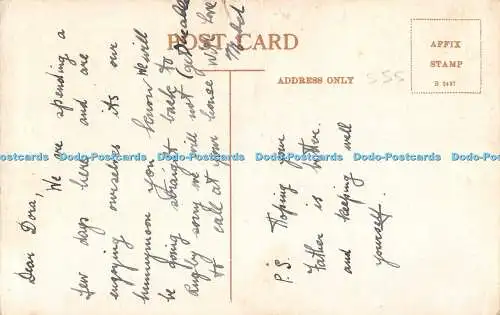 POST CARD
ADDRESS ONLY
AFFIX
STAMP
D 2487
555
Dear Dora,
We are spending a
few days here and are
enjoying ourselves its our
hunnymoon you know we will
be going straight back to
Rugby sorry we will not get
to call at your house with love
Mabel
P.S. Hoping your
Father is better.
and keeping well
yourself.
Dodo-Postcards Dodo-Postcards Dodo-Postcards Dodo-Postcards Dodo-Postcards